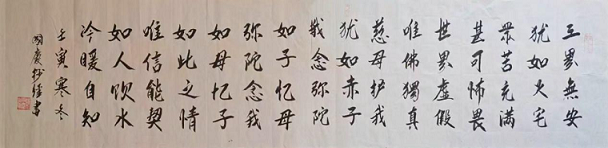 三界無安
犹如火宅
眾苦充滿
甚可怖畏
世界虛假
唯佛獨真
慈母护我
犹如赤子
我念弥陀
弥陀念我
如子忆母
如母忆子
如此之情
唯信能契
如人饮水
冷暖自知
壬寅寒冬
國慶抄經書